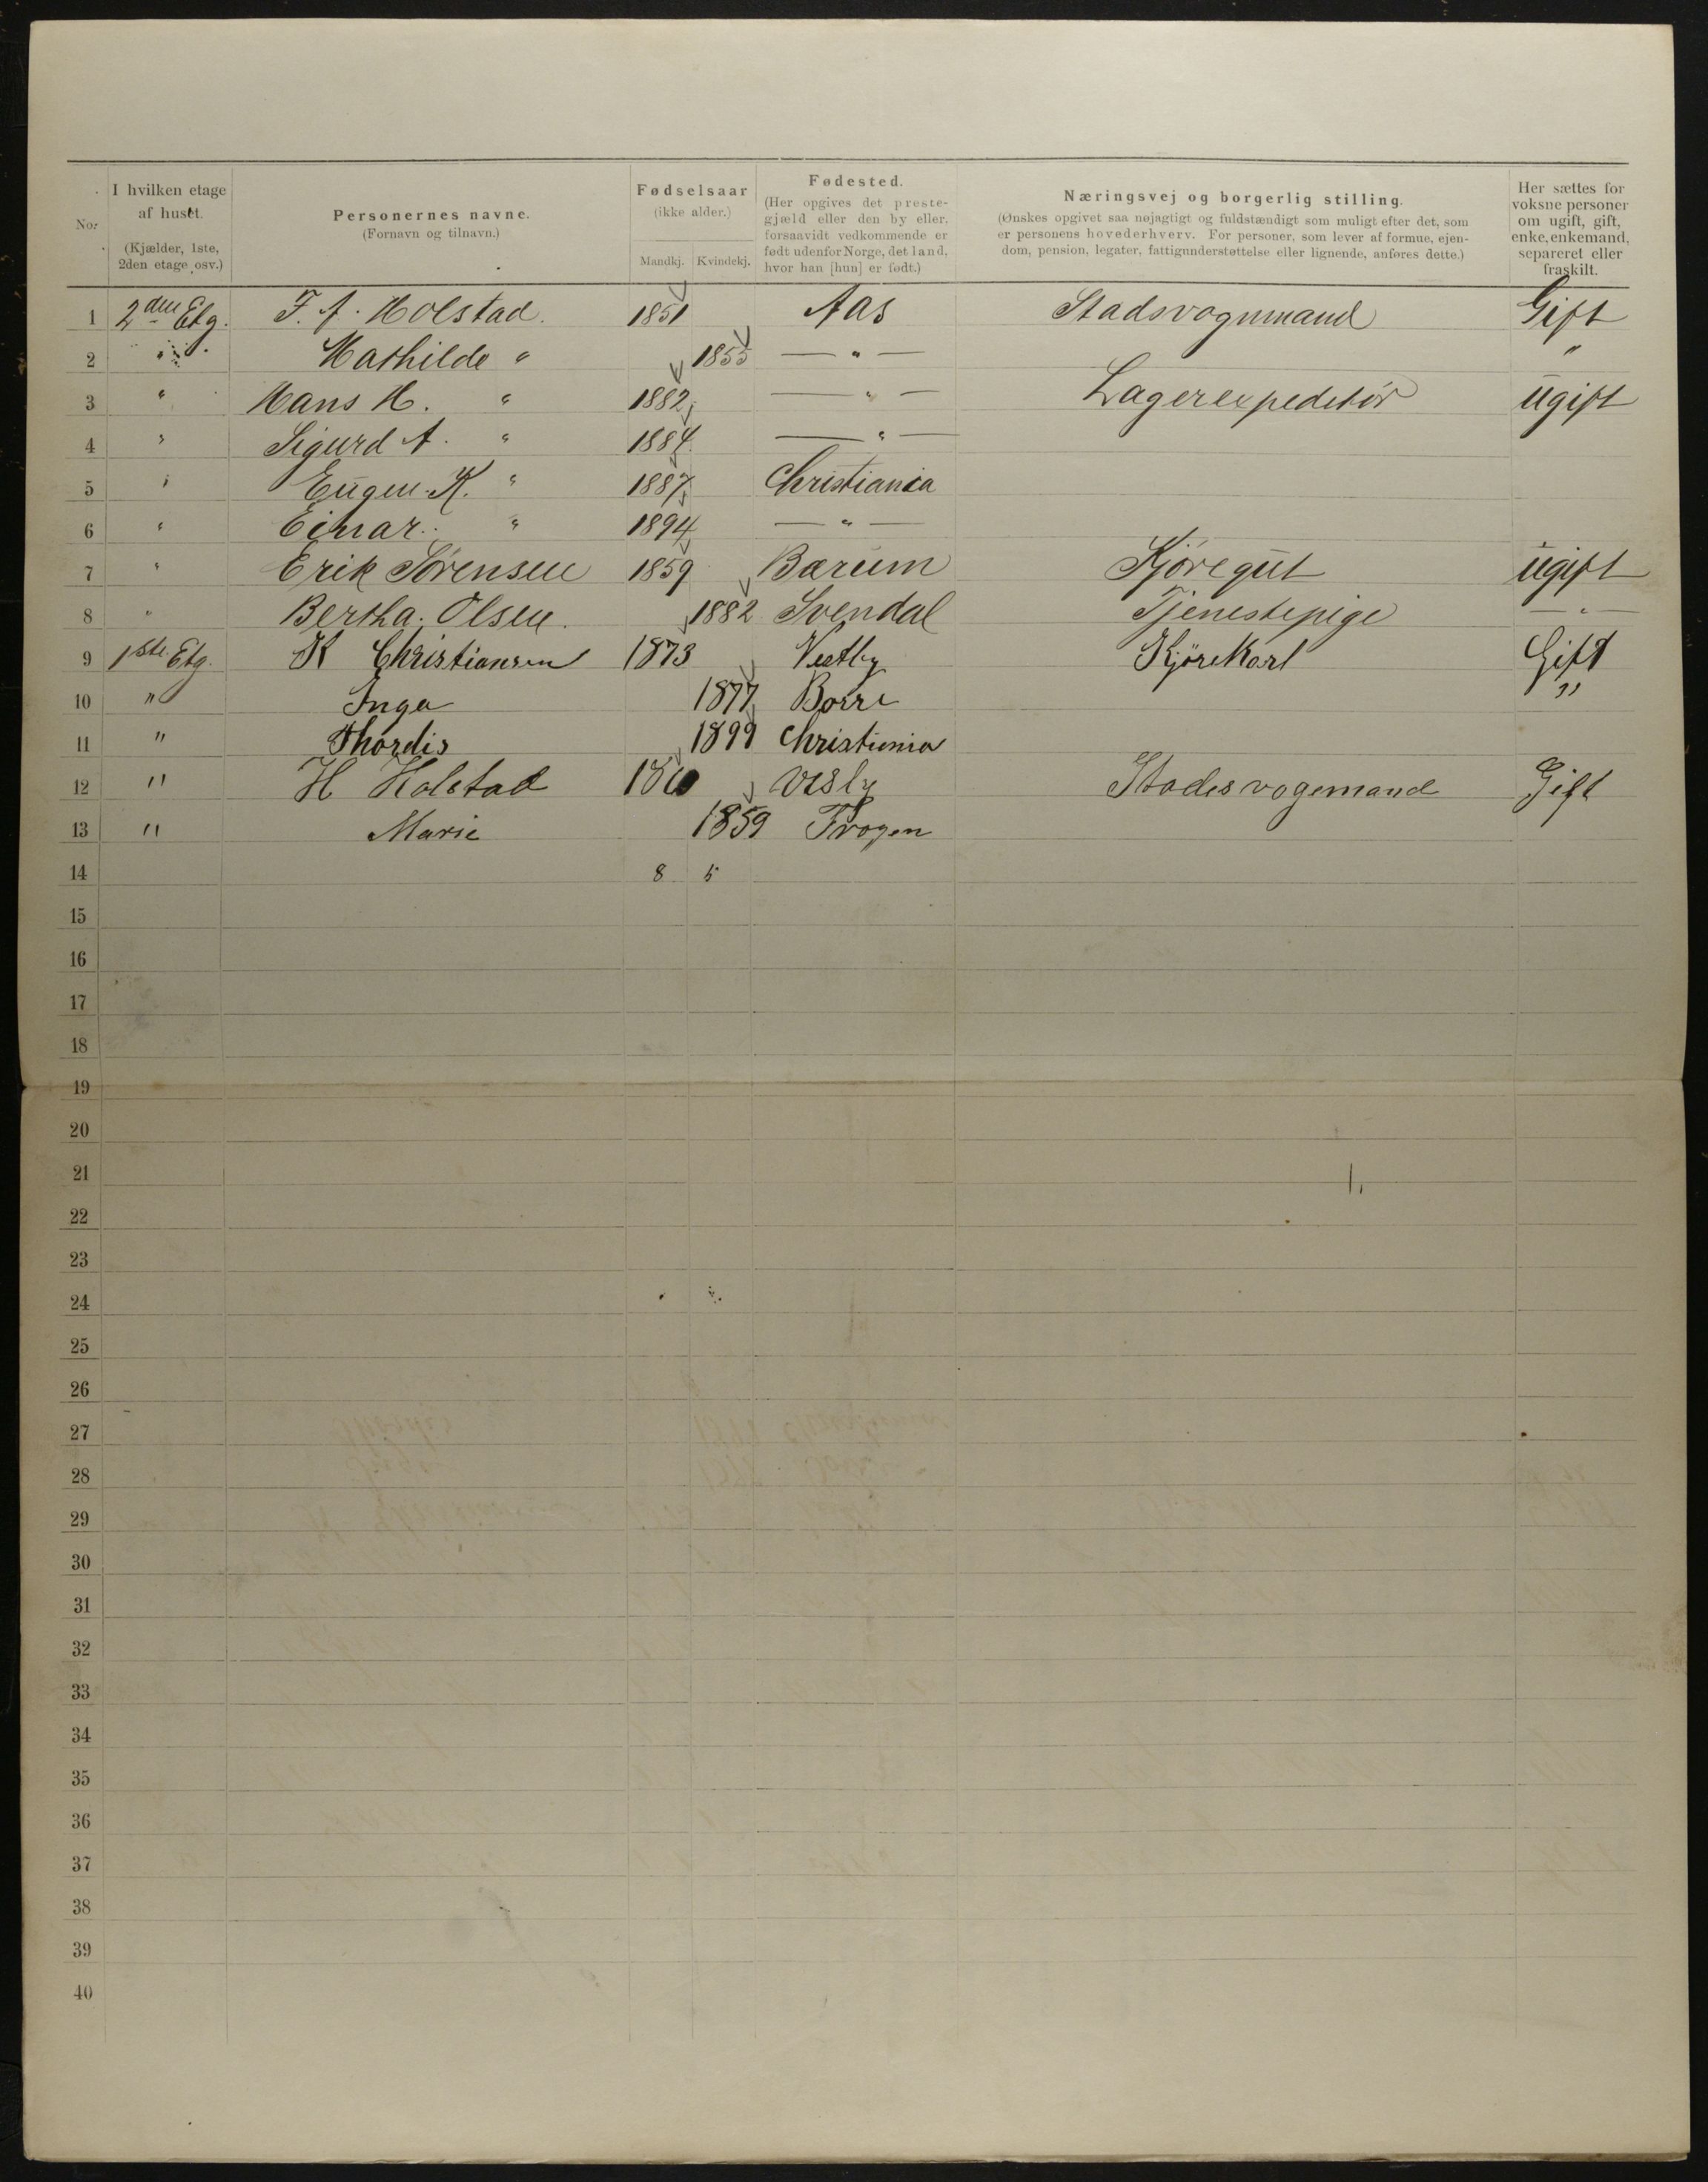 No.
I hvilken etage af huset.
(Kjælder, 1ste, 2den etage osv.)
Personernes navne.
(Fornavn og tilnavn.)
Fødselsaar
(ikke alder.)
Mandkj. Kvindekj.
Fødested.
(Her opgives det prestegjæld eller den by eller, forsaavidt vedkommende er født udenfor Norge, det land, hvor han [hun] er født.)
Næringsvej og borgerlig stilling.
(Ønskes opgivet saa nøjagtigt og fuldstændigt som muligt efter det, som er personens hovederhverv. For personer, som lever af formue, ejendom, pension, legater, fattigunderstøttelse eller lignende, anføres dette.)
Her sættes for voksne personer om ugift, gift, enke, enkemand, separeret eller fraskilt.
1 2den Etg. F. A. Holstad. 1851 Aas Stadsvognmand Gift
2 " Mathilde " 1855 — " — "
3 " Hans H. " 1882 — " — Lagerexpeditør ugift
4 " Sigurd A. " 1884 — " —
5 " Eugen K. " 1887 Christiania
6 " Einar. " 1894 — " —
7 " Erik Sørensen 1859 Bærum Kjøregut ugift
8 " Bertha Olsen. 1882 Svendal Tjenestepige — " —
9 1ste Etg. K Christiansen 1873 Vestby Kjørekarl Gift
10 " Inga 1877 Borre "
11 " Thordis 1899 Christiania
12 " H Holstad Stadsvogemand Gift
13 " Marie 1859 Frogen
14 8 5
15
16
17
18
19
20
21
22
23
24
25
26
27
28
29
30
31
32
33
34
35
36
37
38
39
40